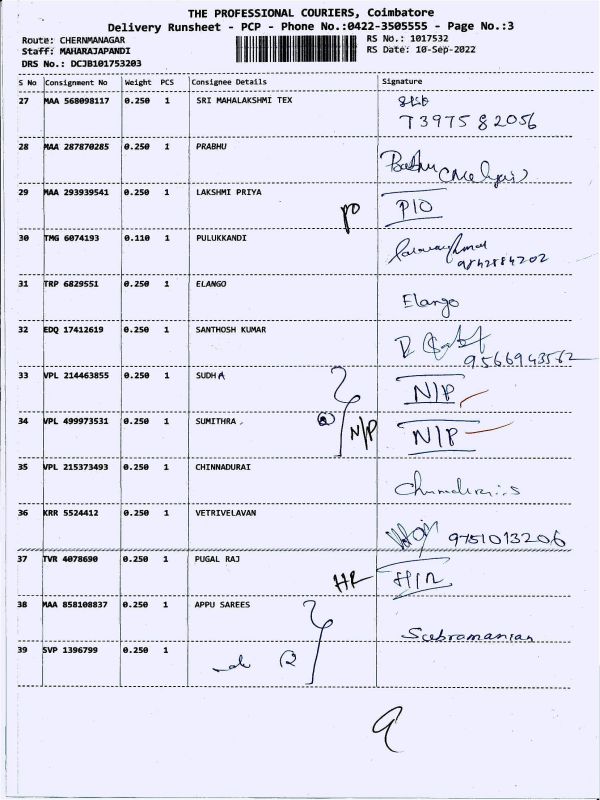 THE PROFESSIONAL COURIERS, Coimbatore
Delivery Runsheet - PCP - Phone No.:0422-3505555 - Page No.:3
Route: CHERNMANAGAR RS No.: 1017532
Staff: MAHARAJAPANDI RS Date: 10-Sep-2022
DRS No.: DCJB101753203
S No Consignment No Weight PCS Consignee Details Signature
27 MAA 568098117 0.250 1 SRI MAHALAKSHMI TEX
7397582056
28 MAA 287870285 0.250 1 PRABHU
29 MAA 293939541 0.250 1 LAKSHMI PRIYA PIO
30 TMG 6074193 0.110 1 PULUKKANDI
9842884202
31 TRP 6829551 0.250 1 ELANGO Elango
32 EDQ 17412619 0.250 1 SANTHOSH KUMAR
9566943562
33 VPL 214463855 0.250 1 SUDHA N/P
34 VPL 499973531 0.250 1 SUMITHRA N/P N/P
35 VPL 215373493 0.250 1 CHINNADURAI
36 KRR 5524412 0.250 1 VETRIVELAVAN 9751013206
37 TVR 4078690 0.250 1 PUGAL RAJ
38 MAA 858108837 0.250 1 APPU SAREES Subramanian
39 SVP 1396799 0.250 1